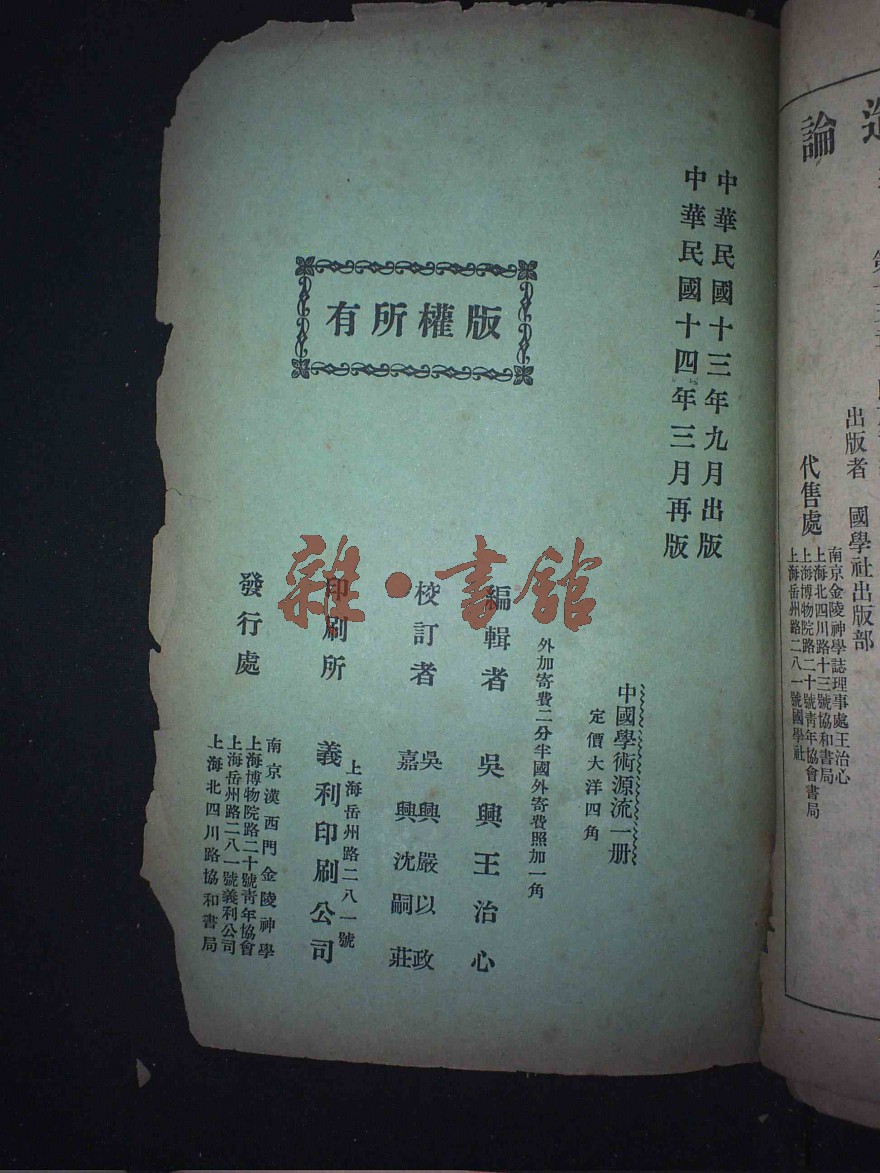 論
出版者 國學社出版部
代售處
南京金陵神學誌理事處王治心
上海北四川路十三號協和書局
上海博物院路二十號青年協會書局
上海岳州路二八一號國學社
中華民國十三年九月出版
中華民國十四年三月再版
版權所有
中國學術源流一册
定價大洋四角
外加寄費二分半國外寄費照加一角
編輯者 吳興王治心
校訂者 吳興嚴以政
嘉興沈嗣莊
上海岳州路二八一號
印刷所 義利印刷公司
發行處
南京漢西門金陵神學
上海博物院路二十號青年協會
上海岳州路二八一號義利公司
上海北四川路協和書局
雜·書館